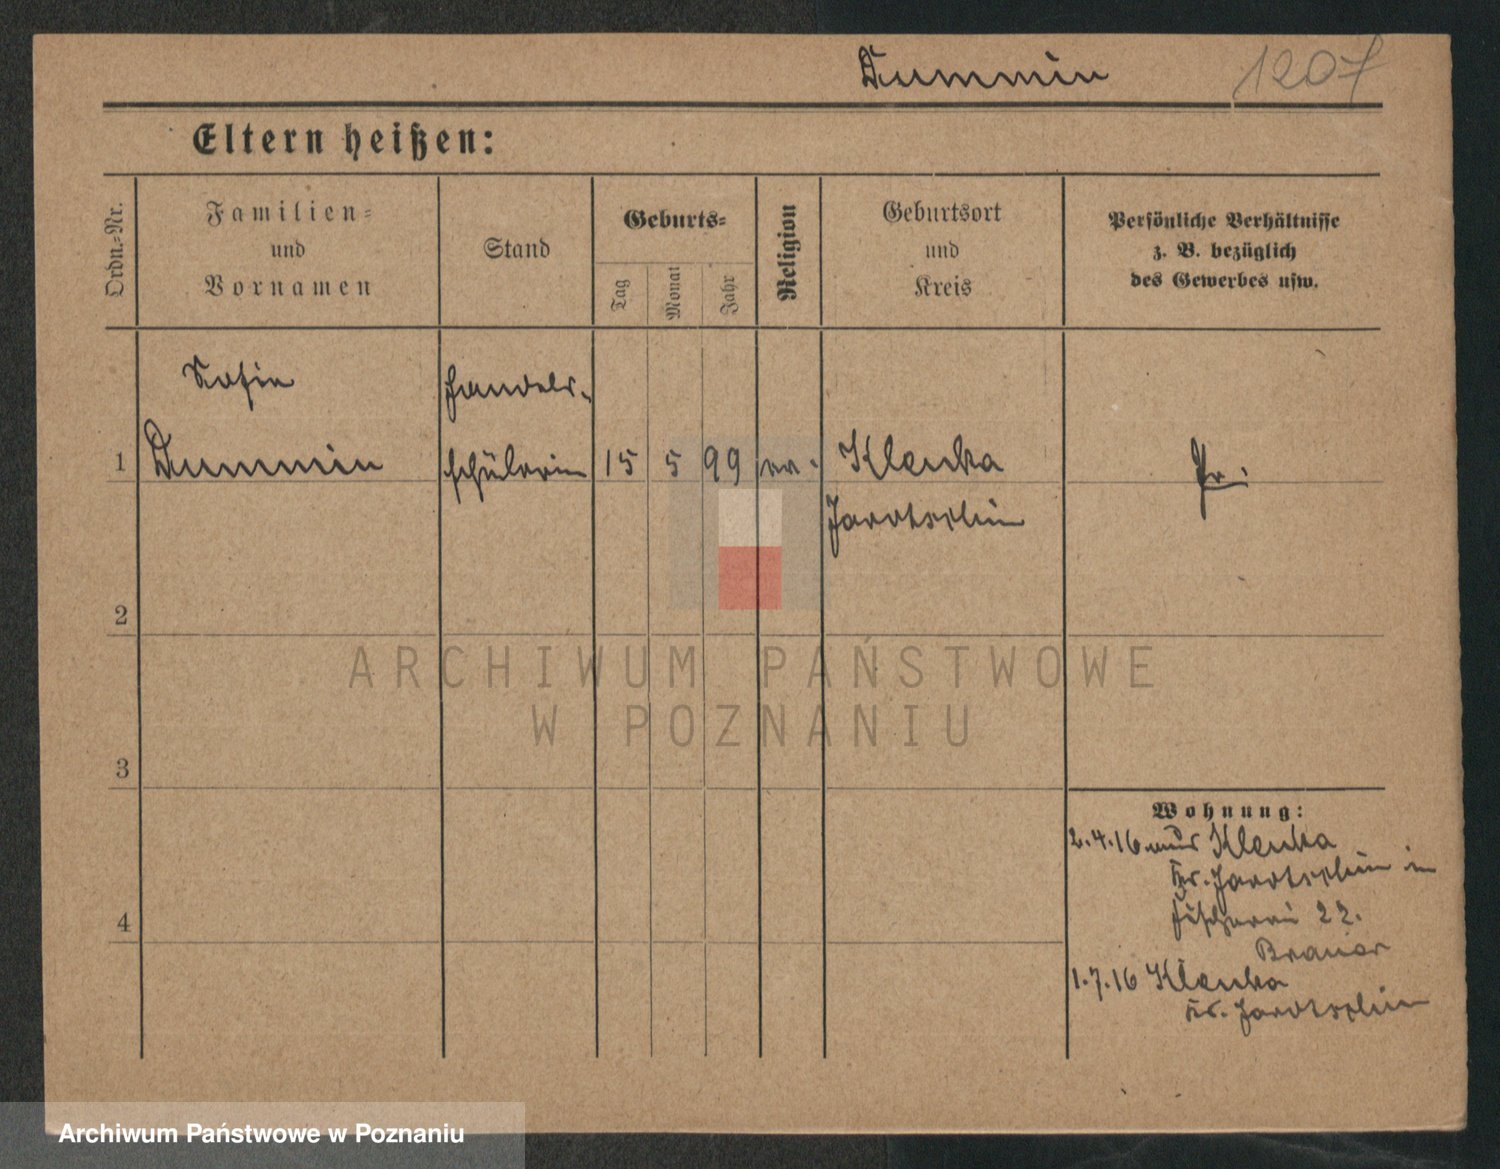 Dummin
1207
Eltern heißen:
Ordn.-Nr.
Familien-
und
Vornamen
Stand
Geburts-
Tag
Monat
Jahr
Religion
Geburtsort
und
Kreis
Persönliche Verhältnisse
z. B. bezüglich
des Gewerbes usw.
Sofie
Handels-
1
Dummin
schülerin
15
5
99
ev.
Klenka
Pr.
Jarotschin
2
ARCHIWUM PAŃSTWOWE
W POZNANIU
3
Wohnung:
2.4.16 aus Klenka
Kr. Jarotschin in
Fischerei 22.
4
1.7.16 Klenka
Kr. Jarotschin
Archiwum Państwowe w Poznaniu